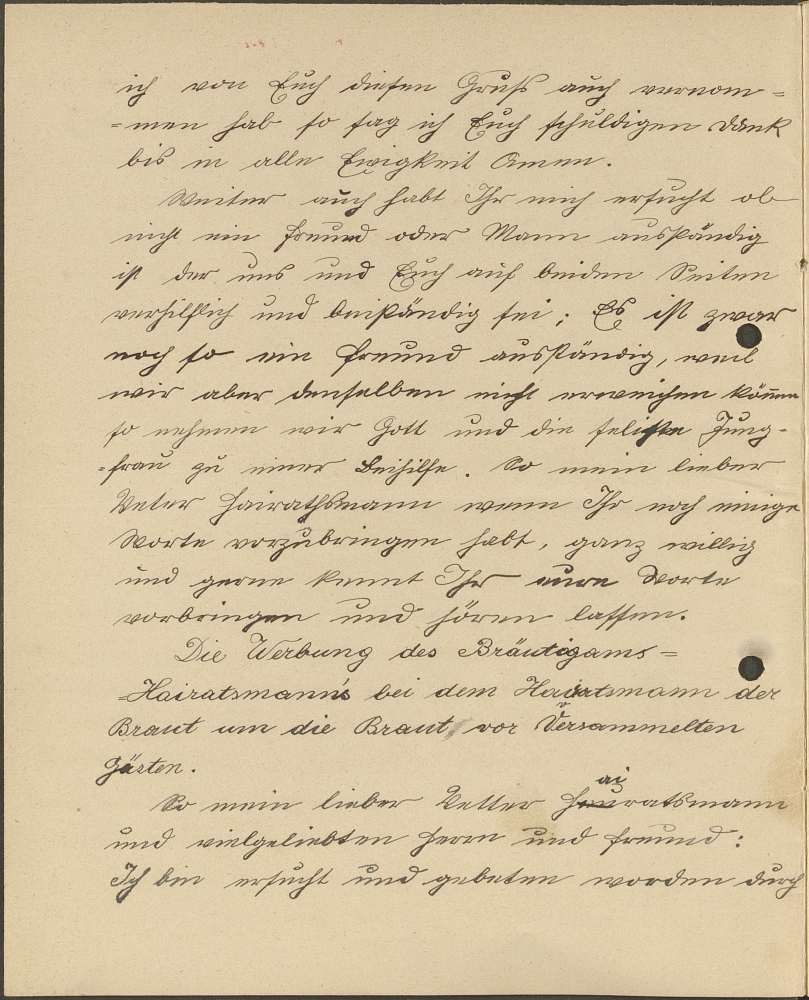 ich von Euch diesen Gruß auch vernom=
=men hab so sag ich Euch schuldigen Dank
bis in alle Ewigkeit Amen.
Weiter auch habt Ihr mich ersucht ob
nicht ein Freund oder Mann ausständig
ist der uns und Euch auf beiden Seiten
verhilflich und beiständig sei; Es ist zwar
noch so ein Freund ausständig, weil
wir aber denselben nicht erweichen können
so nehmen wir Gott und die seligste Jung-
=frau zu einer Beihilfe. So mein lieber
Veter Hairathsmann wenn Ihr noch einige
Worte vorzubringen habt, ganz willig
und gerne kennt Ihr eure Worte
vorbringen und hören lassen.
Die Werbung des Bräutigams=
=Hairatsmann's bei dem Hairatsmann der
Braut um die Braut, vor Versammelten
Gästen.
So mein lieber Vetter Hairatsmann
und vielgeliebten Herrn und Freund:
Ich bin ersucht und gebeten worden durch